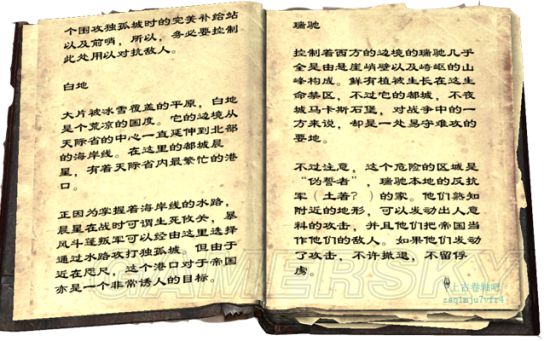 个围攻独孤城时的完美补给站
以及前哨，所以，务必要控制
此处用以对抗敌人。
白地
大片被冰雪覆盖的平原，白地
是个荒凉的国度。它的边境从
天际省的中心一直延伸到北部
的海岸线。在这里的都城晨
星，有着天际省内最繁忙的港
口。
正因为掌握着海岸线的水路，
晨星在战时可谓生死攸关，暴
风斗篷叛军可以经由这里选择
通过水路攻打独孤城。但由于
近在咫尺，这个港口对于帝国
亦是一个非常诱人的目标。
瑞驰
控制着西方的边境的瑞驰几乎
全是由悬崖峭壁以及崎岖的山
峰构成。鲜有植被生长在这生
命禁区，不过它的都城，不夜
城马卡斯石堡，对战争中的一
方来说，却是一处易守难攻的
要地。
不过注意，这个危险的区域是
“伪誓者”，瑞驰本地的反抗
军（土著？）的家。他们熟知
附近的地形，可以发动出人意
料的攻击，并且他们把帝国当
作他们的敌人。如果他们发动
了攻击，不许撤退，不留俘
虏。
上古卷轴吧
zaq1mju7vfr4
GAMERSKY